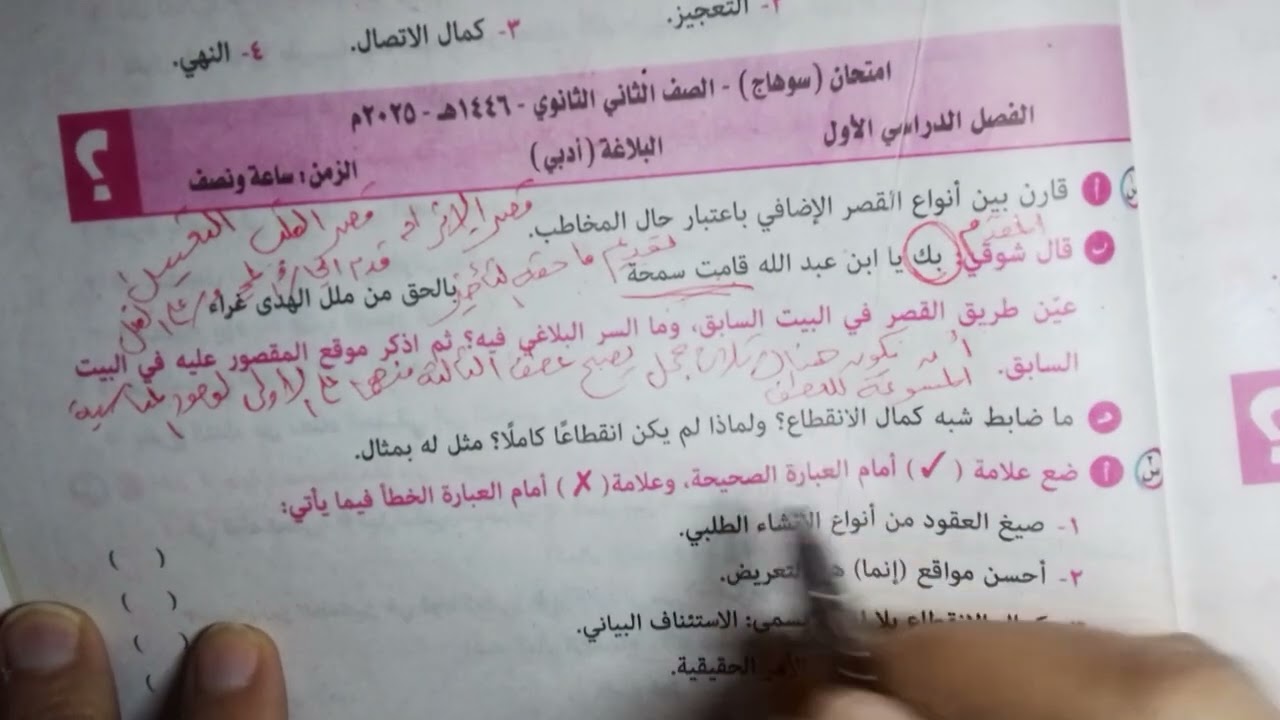 ٢- التعجيز.
٣- كمال الاتصال.
٤- النهي.
امتحان (سوهاج) - الصف الثاني الثانوي - ١٤٤٦هـ - ٢٠٢٥م
الفصل الدراسي الأول
البلاغة (أدبي)
الزمن: ساعة ونصف
؟
أ قارن بين أنواع القصر الإضافي باعتبار حال المخاطب.
قصر القلب
ب قال شوقي: بك يا ابن عبد الله قامت سمحة بالحق من ملل الهدى غراء
تقديم ما حقه التأخير
عيّن طريق القصر في البيت السابق، وما السر البلاغي فيه؟ ثم اذكر موقع المقصور عليه في البيت
السابق.
أن تكون هناك ثلاث جمل يصح عطف الثالثة منها على الأولى لوجود المناسبة
للعطف
د ما ضابط شبه كمال الانقطاع؟ ولماذا لم يكن انقطاعًا كاملًا؟ مثل له بمثال.
أ ضع علامة (✓) أمام العبارة الصحيحة، وعلامة (✗) أمام العبارة الخطأ فيما يأتي:
١- صيغ العقود من أنواع الإنشاء الطلبي. ( )
٢- أحسن مواقع (إنما) التعريض. ( )
الانقطاع بلا الاستئناف البياني. ( )
الحقيقية. (